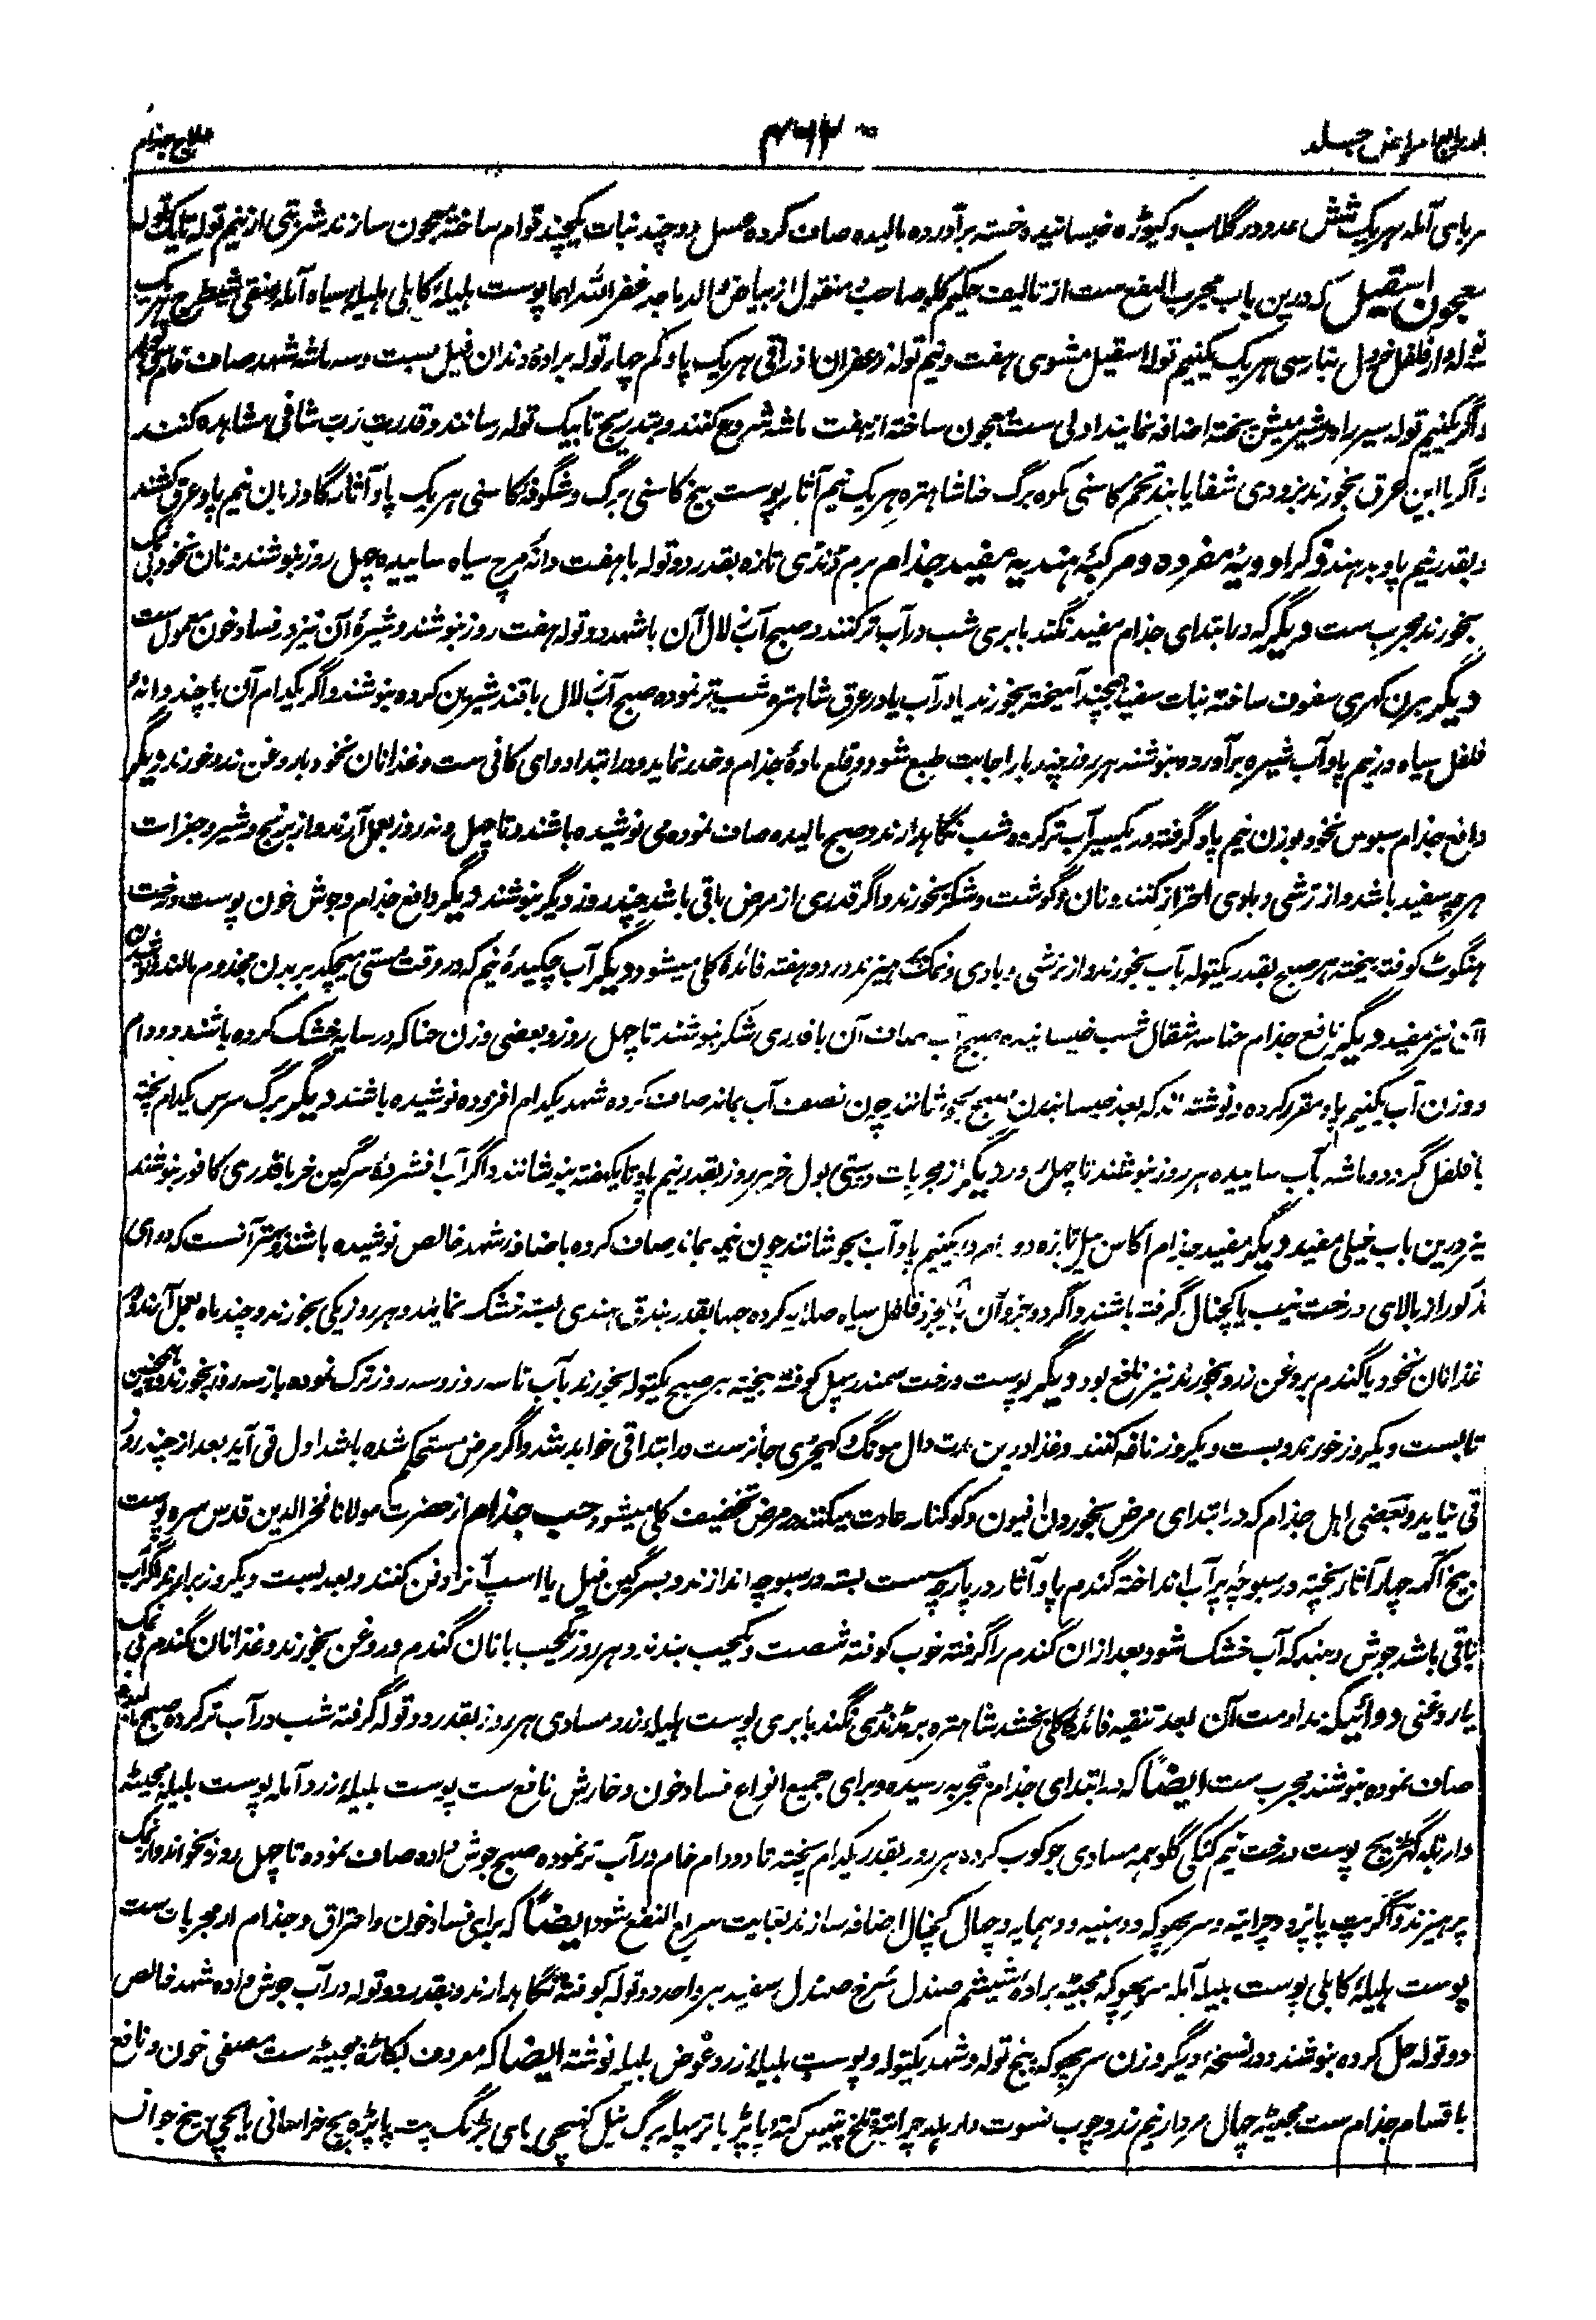 علاج جذام
مربای آمله هر یک شش عدد در گلاب و کیوڑه خیسانیده خسته برآورده مالیده صاف کرده عسل دو چند نبات یکچند قوام ساخته معجون سازند شربتی از نیم توله تا یک توله
معجون اسقیل که درین باب مجرب النفع ست از تالیف حکیم کلو صاحب منقول از بیاض والد ماجد غفر الله لهما پوست هلیلهٔ کابلی هلیلهٔ سیاه آمله منقی شیطرج هر یک
توله دار فلفل خردل بنارسی هر یک یکنیم توله اسقیل مشوی هفت و نیم توله زعفران اذراقی هر یک پاو کم چهار توله برادهٔ دندان فیل بست و سه ماشه شهد صاف
و اگر یکنیم توله سیر را در شیر میش پخته اضافه نمایند اولی ست معجون ساخته از هفت ماشه شروع کنند و بتدریج تا بیک توله رسانند و قدرت رب شافی مشاهده کنند
و اگر با این عرق بخورند بزودی شفا یابند تخم کاسنی مکوه برگ حنا شاهتره هر یک نیم آثار پوست بیخ کاسنی برگ و شگوفهٔ کاسنی هر یک پاو آثار گاوزبان نیم پاو عرق کشند
و بقدر نیم پاو بدهند ذکر ادویهٔ مفرده و مرکبهٔ هندیه مفید جذام برم ڈنڈی تازه بقدر دو توله با هفت دانه مرچ سیاه ساییده چهل روز بنوشند و نان نخود بی نمک
بخورند مجرب ست دیگر که در ابتدای جذام مفید نگند بابری شب در آب تر کنند و صبح آب زلال آن با شهد دو توله هفت روز بنوشند و شیرهٔ آن نیز در فساد خون معمول ست
دیگر برن کهری سفوف ساخته نبات سفید همچند آمیخته بخورند یا در آب یا در عرق شاهتره شب تر نموده صبح آب زلال با قند شیرین کرده بنوشند و اگر یکدام آن با چند دانهٔ
فلفل سیاه در نیم پاو آب شیره برآورده بنوشند هر روز چند بار اجابت طبع شود و قلع مادهٔ جذام و خدر نماید و در ابتدا دوای کافی ست و غذا نان نخود با روغن زرد خورند دیگر
دافع جذام سبوس نخود بوزن نیم پاو گرفته در یکسیر آب تر کرده شب نگاهدارند و صبح مالیده صاف نموده می نوشیده باشند و تا چهل و نه روز بعمل آرند و از برنج و شیر و جغرات
هر چه سفید باشد و از ترشی و بادی احتراز کنند و نان و گوشت و شکر بخورند و اگر قدری از مرض باقی باشد چند روز دیگر بنوشند دیگر دافع جذام و جوش خون پوست درخت
هنگوٹ کوفته بیخته هر صبح بقدر یکتوله بآب بخورند و از ترشی و بادی و نمک پرهیزند در دو هفته فائدهٔ کلی میشود دیگر آب چکیدهٔ نیم که در وقت مستی میچکد بر بدن مجذوم مالند و نوشیدن
آن نیز مفید دیگر نافع جذام حنا سه مثقال شب خیسانیده صبح آب صاف آن با قدری شکر بنوشند تا چهل روز و بعضی وزن حنا که در سایه خشک کرده باشند دو دام
و وزن آب یکنیم پاو مقرر کرده و نوشته اند که بعد خیسانیدن صبح بجوشانند چون نصف آب بماند صاف کرده شهد یکدام افزوده نوشیده باشند دیگر برگ سرس یکدام پخته
با فلفل گرد دو ماشه بآب ساییده هر روز بنوشند تا چهل روز دیگر از مجربات بول خر هر روز بقدر نیم پاو تا یکهفته بنوشانند و اگر آب افشردهٔ سرگین خر با قدری کافور بنوشند
نیز درین باب خیلی مفید دیگر مفید جذام اکاس بیل تازه دو درم در یکنیم پاو آب بجوشانند چون نیمه بماند صاف کرده باضافهٔ شهد خالص نوشیده باشند و بهتر آنست که دوای
مذکور از بالای درخت نیب یا کچنال گرفته باشند و اگر دو جزو آن با یکجزو فلفل سیاه صلایه کرده حبها بقدر بندق هندی بسته خشک نمایند و هر روز یکی بخورند و چند ماه بعمل آرند
غذا نان نخود یا گندم بروغن زرد بخورند نیز نافع بود دیگر پوست درخت سمندر پهل کوفته بیخته هر صبح یکتوله بخورند بآب تا سه روز و سه روز ترک نموده باز سه روز بخورند و همچنین
تا بست و یکروز خورند و بست و یکروز ناغه کنند و غذا درین مدت دال مونگ و کهچڑی جائز ست در ابتدا قی خواهد شد و اگر مرض مستحکم شده باشد اول قی آید بعد از چند روز
قی نیاید و بعضی اهل جذام که در ابتدای مرض بخوردن افیون و کوکنار عادت میکنند در مرض تخفیف کلی میشود حب جذام از حضرت مولانا فخر الدین قدس سره پوست
بیخ آکهه چهار آثار پخته در سبوچهٔ پر آب انداخته گندم پاو آثار در پارچه سست بسته در سبوچه اندازند و بسرگین فیل یا اسپ آنرا دفن کنند و بعد بست و یکروز برآرند اگر آب
باقی باشد جوش دهند که آب خشک شود بعد ازان گندم را گرفته خوب کوفته شصت و یکحب بندند و هر روز یکحب با نان گندم و روغن بخورند و غذا نان گندم بی نمک
یا روغنی دوائیکه مداومت آن بعد تنقیه فائدهٔ کلی بخشد شاهتره برمڈنڈی نگند بابری پوست هلیلهٔ زرد مساوی هر روز بقدر دو توله گرفته شب در آب تر کرده صبح
صاف نموده بنوشند مجرب ست ایضاً که در ابتدای جذام بتجربه رسیده و برای جمیع انواع فساد خون و خارش نافع ست پوست هلیلهٔ زرد آمله پوست بلیله مجیٹهه
دارهلد کٹکی بچ پوست درخت نیم گلو همه مساوی جوکوب کرده هر روز بقدر یکدام پخته تا دو دام خام در آب تر نموده صبح جوش داده صاف نموده تا چهل روز بخورند و از نمک
پرهیزند و اگر پت پاپڑه و چرایته و سرپهوکه و دهنیه و دهمایه و چهال کچنال اضافه سازند بغایت سریع النفع شود ایضاً که برای فساد خون و احتراق و جذام از مجربات ست
پوست هلیلهٔ کابلی پوست بلیله آمله سرپهوکه مجیٹهه برادهٔ شیشم صندل سرخ صندل سفید هر واحد دو توله کوفته نگاهدارند و بقدر دو توله در آب جوش داده شهد خالص
دو توله حل کرده بنوشند و در نسخهٔ دیگر وزن سرپهوکه پنج توله و شهد یکتوله و پوست هلیلهٔ زرد عوض بلیله نوشته ایضاً که معروف بکاڑهٔ مجیٹهه ست مصفی خون و نافع
باقسام جذام ست مجیٹهه چهال نیم زرد چوب نسوت دارهلد چرایته تلخ کتهه پاپڑیا ترپهله برگ نیل پت پاپڑه بچ خراسانی